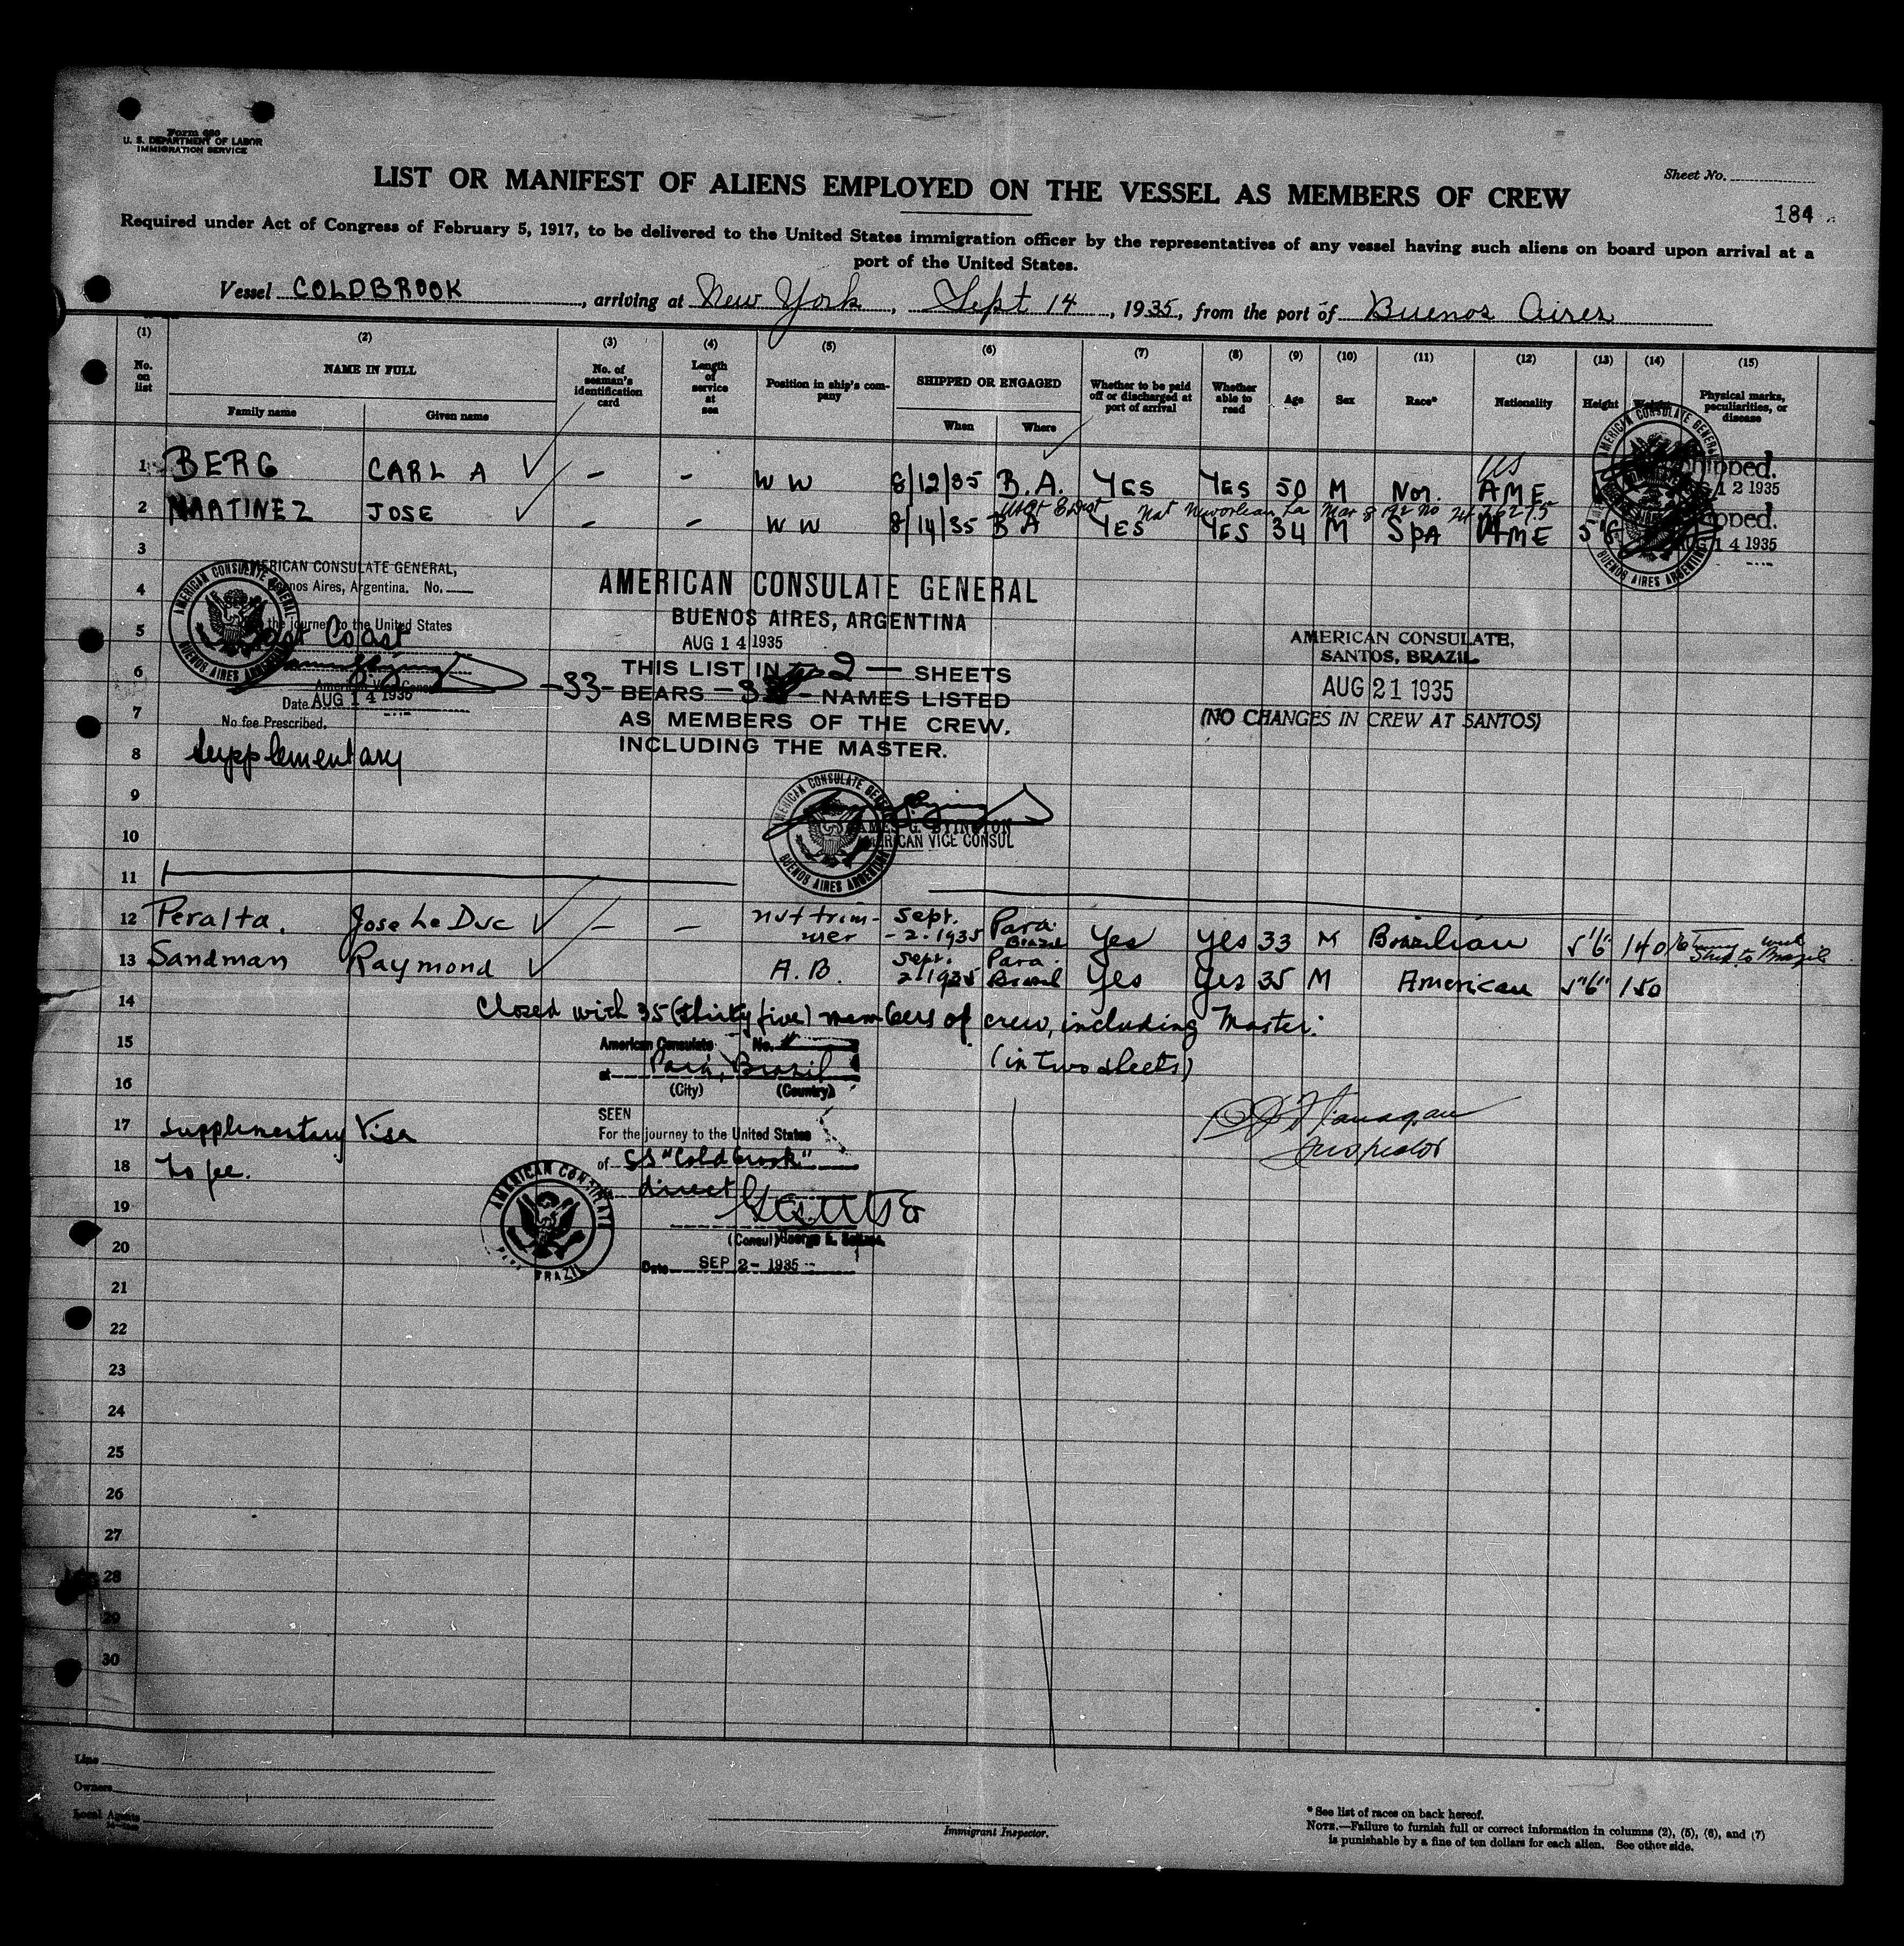 Form 680
U. S. DEPARTMENT OF LABOR
IMMIGRATION SERVICE
Sheet No.
LIST OR MANIFEST OF ALIENS EMPLOYED ON THE VESSEL AS MEMBERS OF CREW
184
Required under Act of Congress of February 5, 1917, to be delivered to the United States immigration officer by the representatives of any vessel having such aliens on board upon arrival at a
port of the United States.
Vessel COLDBROOK, arriving at New York, Sept 14, 1935, from the port of Buenos Aires
(1) (2) (3) (4) (5) (6) (7) (8) (9) (10) (11) (12) (13) (14) (15)
No. on list
NAME IN FULL
Family name Given name
No. of seaman's identification card
Length of service at sea
Position in ship's company
SHIPPED OR ENGAGED
When Where
Whether to be paid off or discharged at port of arrival
Whether able to read
Age
Sex
Race*
Nationality
Height
Weight
Physical marks, peculiarities, or disease
US
1 BERG CARL A √ - - WW 8/12/35 B.A. YES YES 50 M Nor. AME
Shipped.
AUG 12 1935
Nat New Orleans, La Mar 8
2 MARTINEZ JOSE √ - - WW 8/14/35 BA YES YES 34 M SpA AME
Shipped.
AUG 14 1935
3
4
5
6
7
8
9
10
11
AMERICAN CONSULATE GENERAL,
Buenos Aires, Argentina. No.
the journey to the United States
Coast
American Vice Consul
Date AUG 14 1935
No fee Prescribed.
Supplementary
AMERICAN CONSULATE GENERAL
BUENOS AIRES, ARGENTINA
AUG 14 1935
THIS LIST IN 2 — SHEETS
-33- BEARS NAMES LISTED
AS MEMBERS OF THE CREW.
INCLUDING THE MASTER.
AMERICAN CONSULATE GENERAL
BUENOS AIRES ARGENTINA
JAMES G. BYINGTON
AMERICAN VICE CONSUL
AMERICAN CONSULATE,
SANTOS, BRAZIL.
AUG 21 1935
(NO CHANGES IN CREW AT SANTOS)
12 Peralta. Jose Le Duc √ - - nut trimmer Sept. -2-1935 Para. Brazil Yes Yes 33 M Brazilian 5"6" 140
13 Sandman Raymond √ A.B. Sept. 2 1935 Para. Brazil Yes Yes 35 M American 5"6" 150
14
Closed with 35 (thirty five) members of crew, including Master.
(in two sheets)
15
16
American Consulate No.
at Pará, Brazil
(City) (Country)
17
18
SEEN
For the journey to the United States
of SS "Coldbrook"
direct
Supplimentary Visa
No fee.
Inspector
AMERICAN CONSULATE
PARA, BRAZIL
(Consul)
Date SEP 2- 1935
19
20
21
22
23
24
25
26
27
28
29
30
Line
Owners
Local Agents
Immigrant Inspector.
* See list of races on back hereof.
NOTE.—Failure to furnish full or correct information in columns (2), (5), (6), and (7)
is punishable by a fine of ten dollars for each alien. See other side.